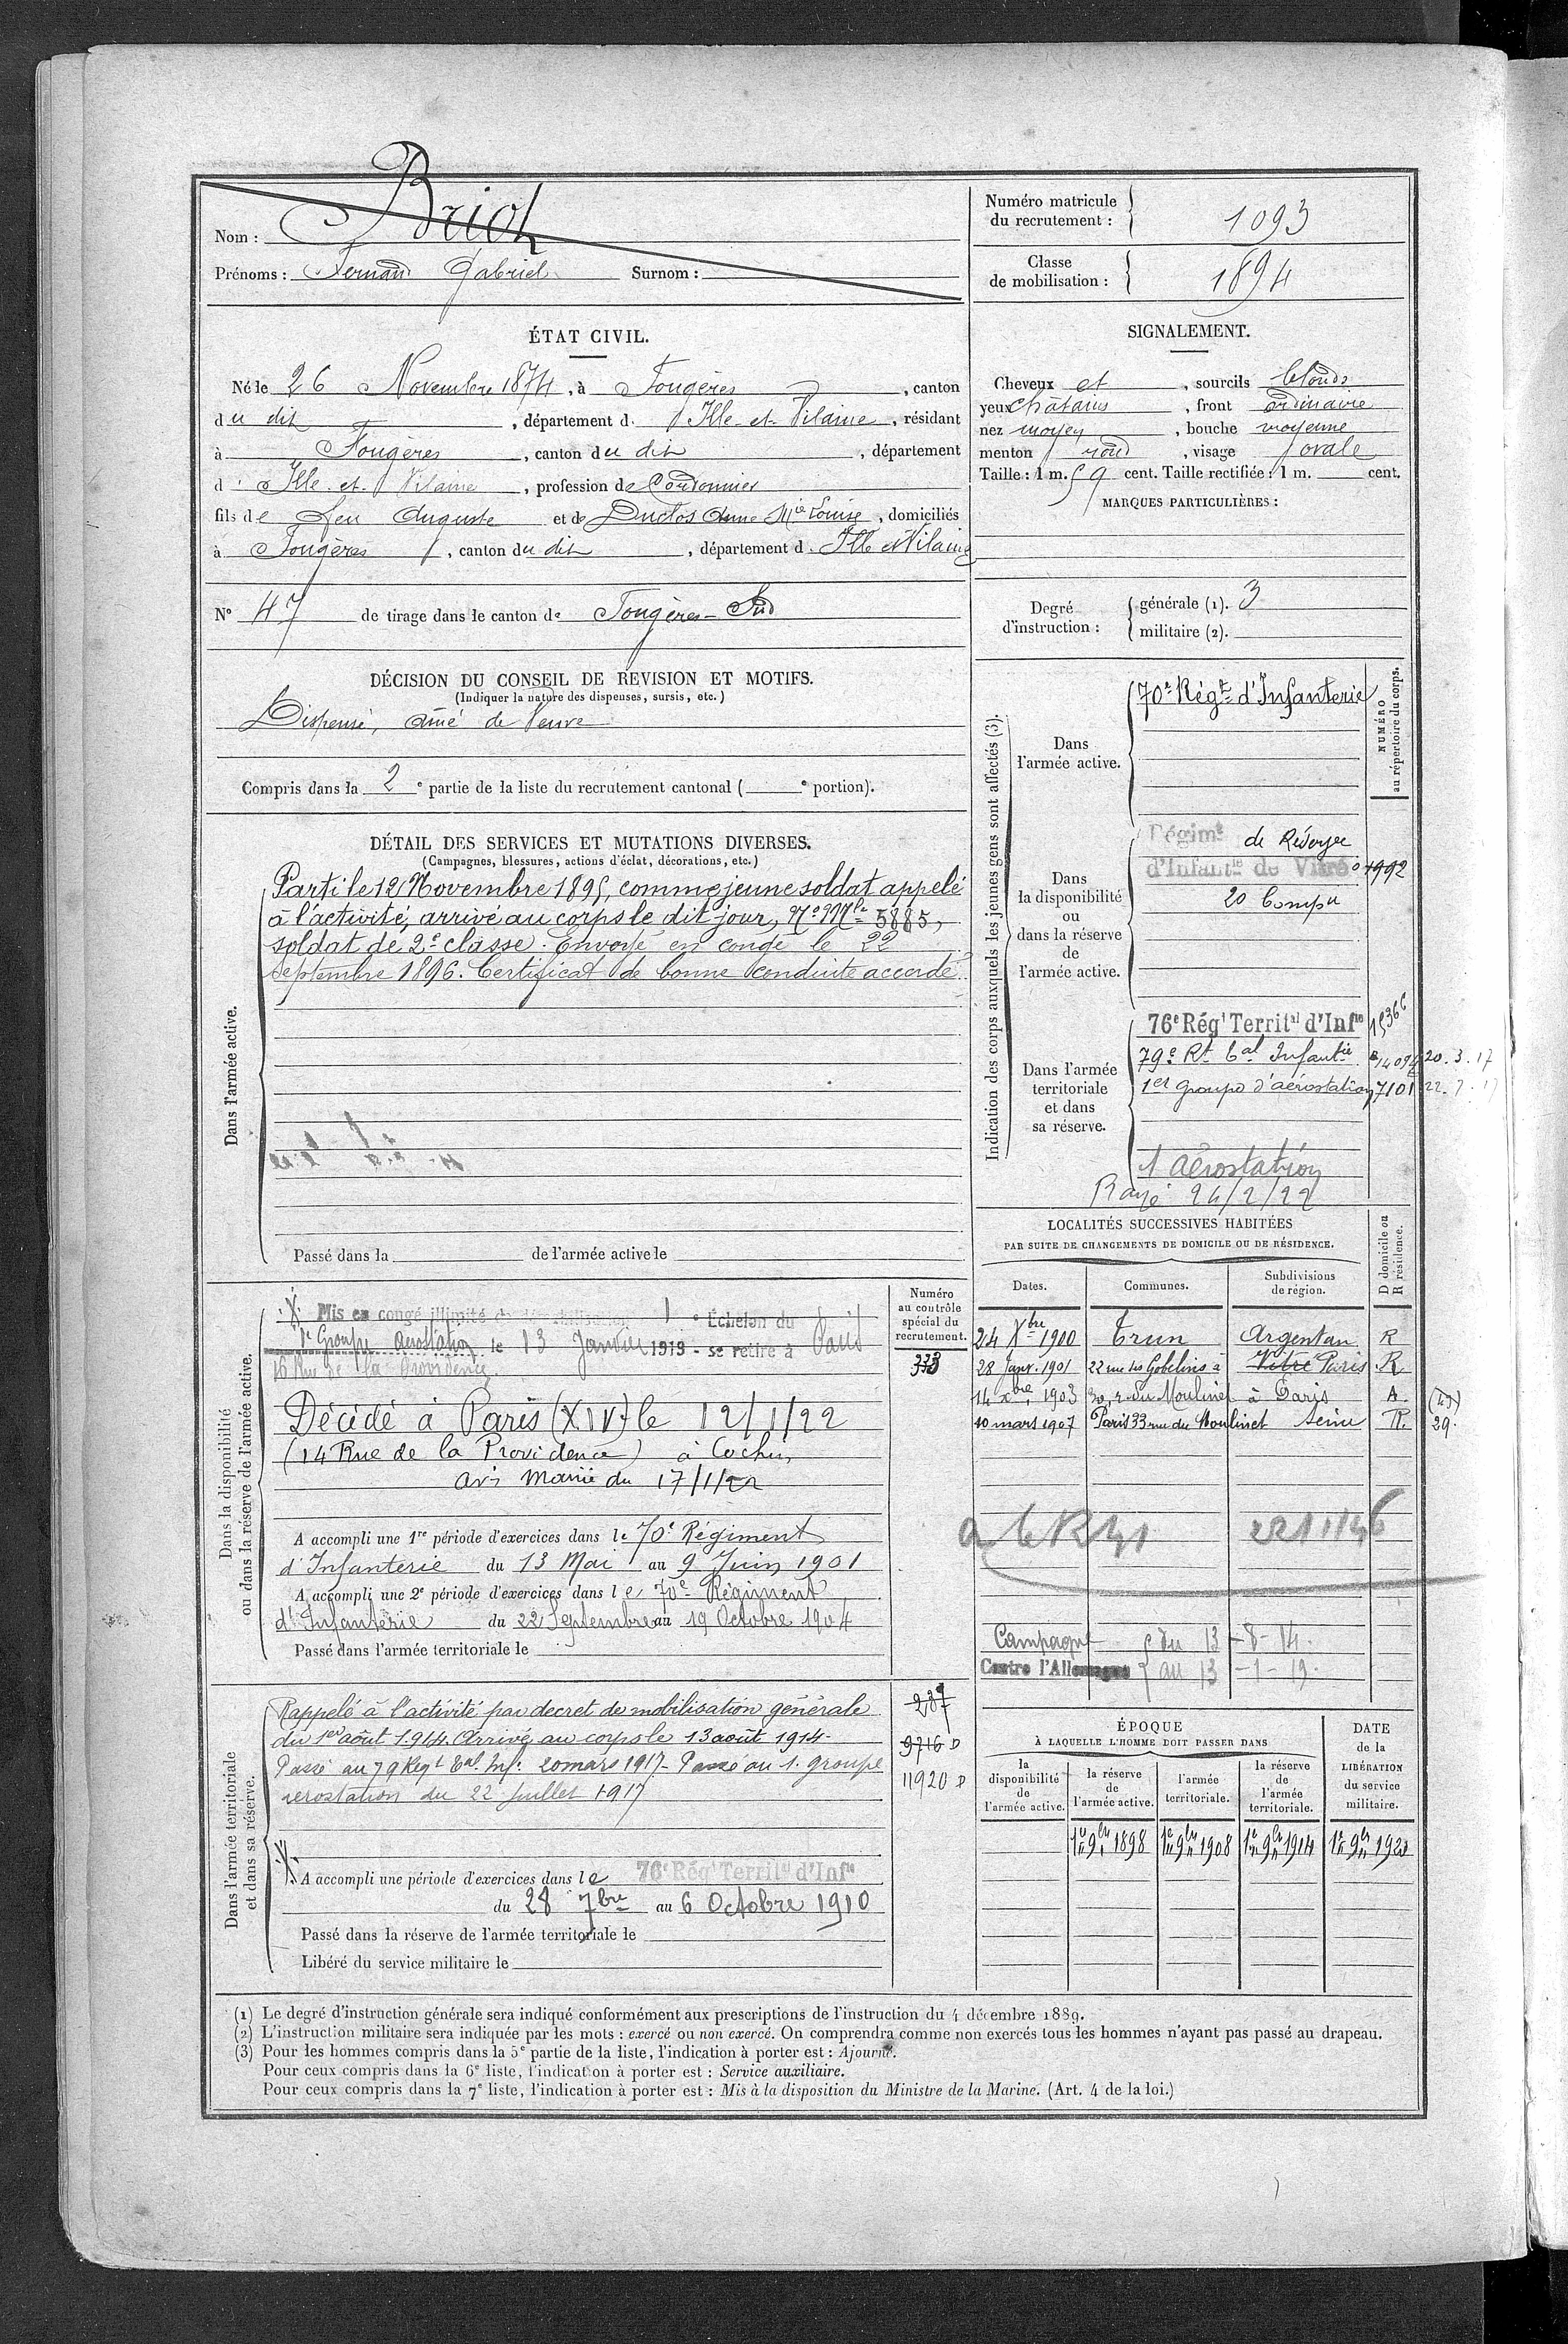 Nom : Briot
Prénoms : Fernand Gabriel Surnom :
Numéro matricule du recrutement : 1093
Classe de mobilisation : 1894
ÉTAT CIVIL.
Né le 26 Novembre 1874, à Fougères, canton
du dit, département d. Ille-et-Vilaine, résidant
à Fougères, canton du dit, département
d. Ille-et-Vilaine, profession de Cordonnier
fils de feu Auguste et de Duclos Anne Mie Louise, domiciliés
à Fougères, canton du dit, département d. Ille et Vilaine
N° 47 de tirage dans le canton de Fougères-Sud
SIGNALEMENT.
Cheveux et, sourcils blonds
yeux châtains, front ordinaire
nez moyen, bouche moyenne
menton rond, visage ovale
Taille : 1 m. 59 cent. Taille rectifiée : 1 m. cent.
MARQUES PARTICULIÈRES :
Degré d'instruction :
générale (1). 3
militaire (2).
DÉCISION DU CONSEIL DE REVISION ET MOTIFS.
(Indiquer la nature des dispenses, sursis, etc.)
Dispensé, aîné de Veuve
Compris dans la 2e partie de la liste du recrutement cantonal ( e portion).
DÉTAIL DES SERVICES ET MUTATIONS DIVERSES.
(Campagnes, blessures, actions d'éclat, décorations, etc.)
Dans l'armée active.
Parti le 12 Novembre 1895, comme jeune soldat appelé
à l'activité, arrivé au corps le dit jour, No Mle 5885,
soldat de 2e classe. Envoyé en congé le 22
septembre 1896. Certificat de bonne conduite accordé.
Passé dans la de l'armée active le
Indication des corps auxquels les jeunes gens sont affectés (3).
NUMÉRO au répertoire du corps.
Dans l'armée active.
70e Régt d'Infanterie
Dans la disponibilité ou dans la réserve de l'armée active.
Régimt de Réserve
d'Infantie de Vitré 1992
20 Compie
Dans l'armée territoriale et dans sa réserve.
76e Régt Territal d'Infie 15366
79e Rt tal Infantie 14094 20.3.17
1er groupe d'aérostation 7101 22.7.17
1 Aérostation
Rayé 24/2/22
LOCALITÉS SUCCESSIVES HABITÉES
PAR SUITE DE CHANGEMENTS DE DOMICILE OU DE RÉSIDENCE.
Dates. Communes. Subdivisions de région. D domicile ou R résidence.
24 Xbre 1900 Trun Argentan R
28 Janv. 1901 22 rue des Gobelins à Vitré Paris R
14 Xbre 1903 30, r du Moulinet à Paris A (49)
10 mars 1907 Paris 33 rue du Moulinet Seine R. 29.
Campagne du 13-8-14.
Contre l'Allemagne au 13-1-19.
Dans la disponibilité ou dans la réserve de l'armée active.
Numéro au contrôle spécial du recrutement.
333
Mis en congé illimité de démobilisation 1e Échelon du
1er Groupe Aérostation le 13 Janvier 1919 - se retire à Paris
16 Rue de la Providence
Décédé à Paris (XIV) le 12/1/22
(14 Rue de la Providence) à Cochin
avis Mairie du 17/1/22
A accompli une 1re période d'exercices dans le 70e Régiment
d'Infanterie du 13 Mai au 9 Juin 1901
A accompli une 2e période d'exercices dans le 70e Régiment
d'Infanterie du 22 Septembre au 19 Octobre 1904
Passé dans l'armée territoriale le
Dans l'armée territoriale et dans sa réserve.
287
9716 D
11920 D
Rappelé à l'activité par décret de mobilisation générale
du 1er août 1914. Arrivé au corps le 13 août 1914.
Passé au 79 Regt tal Inf. 20 mars 1917 - Passé au 1. groupe
aerostation du 22 juillet 1917
A accompli une période d'exercices dans le 76e Régt Territal d'Infie
du 28 7bre au 6 Octobre 1910
Passé dans la réserve de l'armée territoriale le
Libéré du service militaire le
ÉPOQUE
À LAQUELLE L'HOMME DOIT PASSER DANS
la disponibilité de l'armée active.
la réserve de l'armée active.
l'armée territoriale.
la réserve de l'armée territoriale.
DATE de la LIBÉRATION du service militaire.
1er 9bre 1898 1er 9bre 1908 1er 9bre 1914 1er 9bre 1920
(1) Le degré d'instruction générale sera indiqué conformément aux prescriptions de l'instruction du 4 décembre 1889.
(2) L'instruction militaire sera indiquée par les mots : exercé ou non exercé. On comprendra comme non exercés tous les hommes n'ayant pas passé au drapeau.
(3) Pour les hommes compris dans la 5e partie de la liste, l'indication à porter est : Ajourné.
Pour ceux compris dans la 6e liste, l'indication à porter est : Service auxiliaire.
Pour ceux compris dans la 7e liste, l'indication à porter est : Mis à la disposition du Ministre de la Marine. (Art. 4 de la loi.)